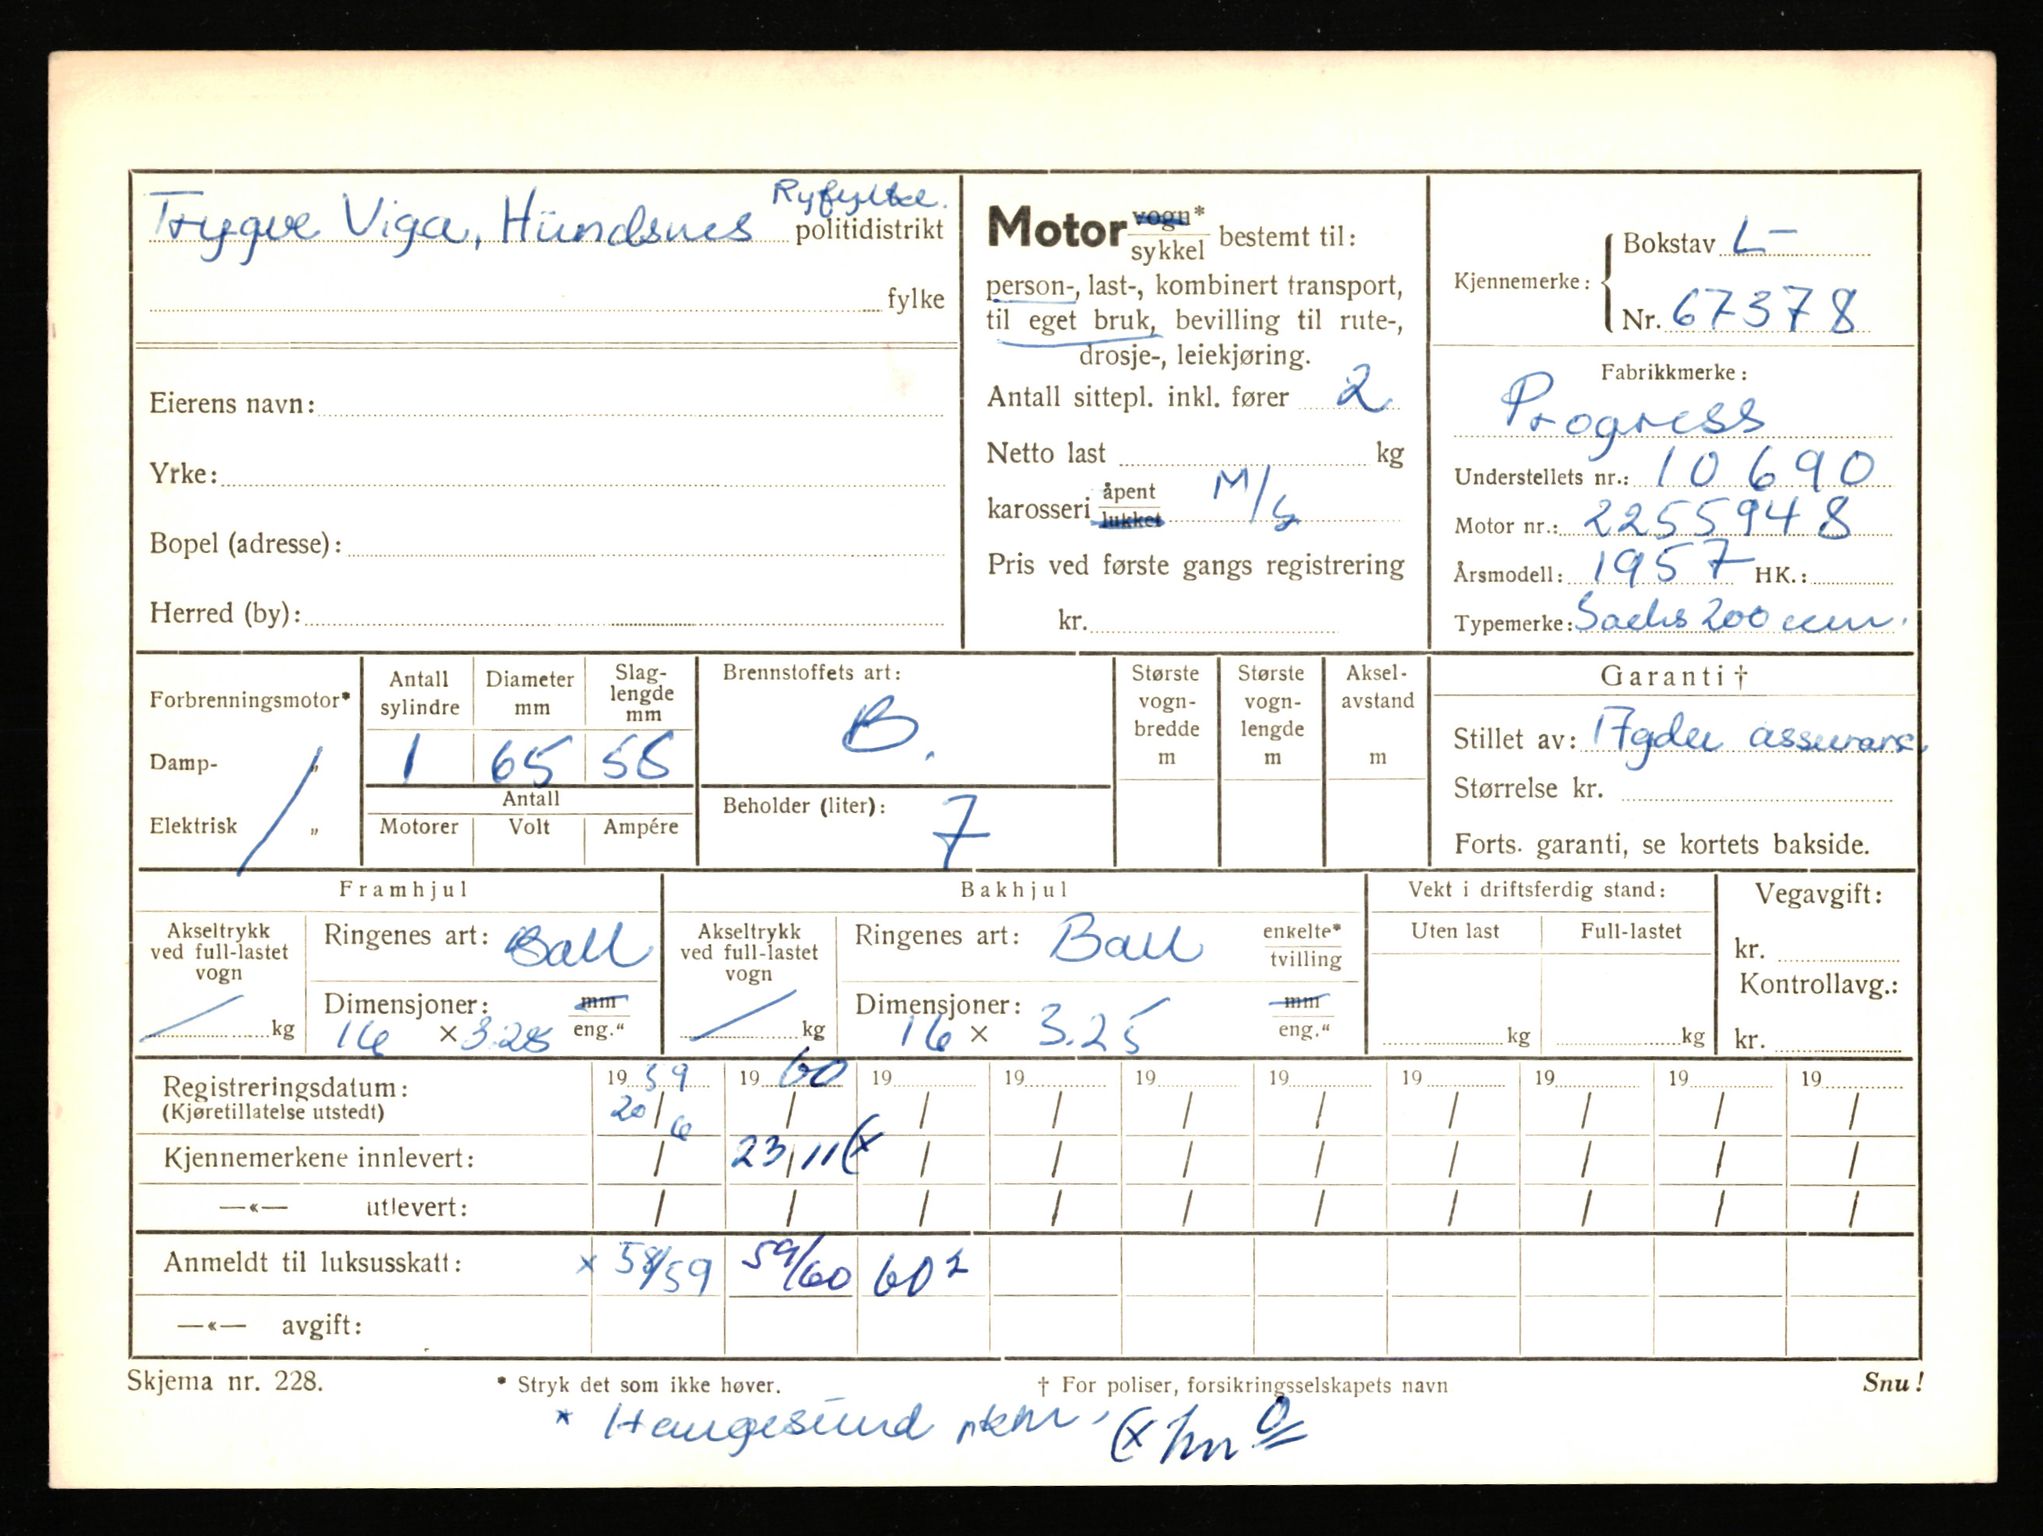 Trygve Viga, Hundsnes Ryfylke. politidistrikt
fylke
Eierens navn:
Yrke:
Bopel (adresse):
Herred (by):
Motor vogn* sykkel bestemt til:
person-, last-, kombinert transport,
til eget bruk, bevilling til rute-,
drosje-, leiekjøring.
Antall sittepl. inkl. fører 2
Netto last kg
karosseri åpent lukket M/s
Pris ved første gangs registrering
kr.
Kjennemerke: Bokstav L-
Nr. 67378
Fabrikkmerke:
Progress
Understellets nr.: 10690
Motor nr.: 2255948
Årsmodell: 1957 HK.:
Typemerke: Sachs 200 ccm.
Forbrenningsmotor*
Damp- „
Elektrisk „
Antall sylindre Diameter mm Slag-lengde mm
1 65 58
Antall
Motorer Volt Ampére
Brennstoffets art:
B.
Beholder (liter): 7
Største vogn-bredde m
Største vogn-lengde m
Aksel-avstand m
Garanti †
Stillet av: Agder assurans.
Størrelse kr.
Forts. garanti, se kortets bakside.
Framhjul
Akseltrykk ved full-lastet vogn
kg
Ringenes art: Ball
Dimensjoner: mm eng.“
16 × 3.25
Bakhjul
Akseltrykk ved full-lastet vogn
kg
Ringenes art: Ball enkelte* tvilling
Dimensjoner: mm eng.“
16 × 3.25
Vekt i driftsferdig stand:
Uten last Full-lastet
kg kg
Vegavgift:
kr.
Kontrollavg.:
kr.
Registreringsdatum: 1959 1960 19 19 19 19 19 19 19 19
(Kjøretillatelse utstedt) 20/6 / / / / / / / / /
Kjennemerkene innlevert: / 23/11 (x / / / / / / / /
—«— utlevert: / / / / / / / / / /
Anmeldt til luksusskatt: x 58/59 59/60 60²
—«— avgift:
Skjema nr. 228. * Stryk det som ikke høver. † For poliser, forsikringsselskapets navn Snu!
* Haugesund (x